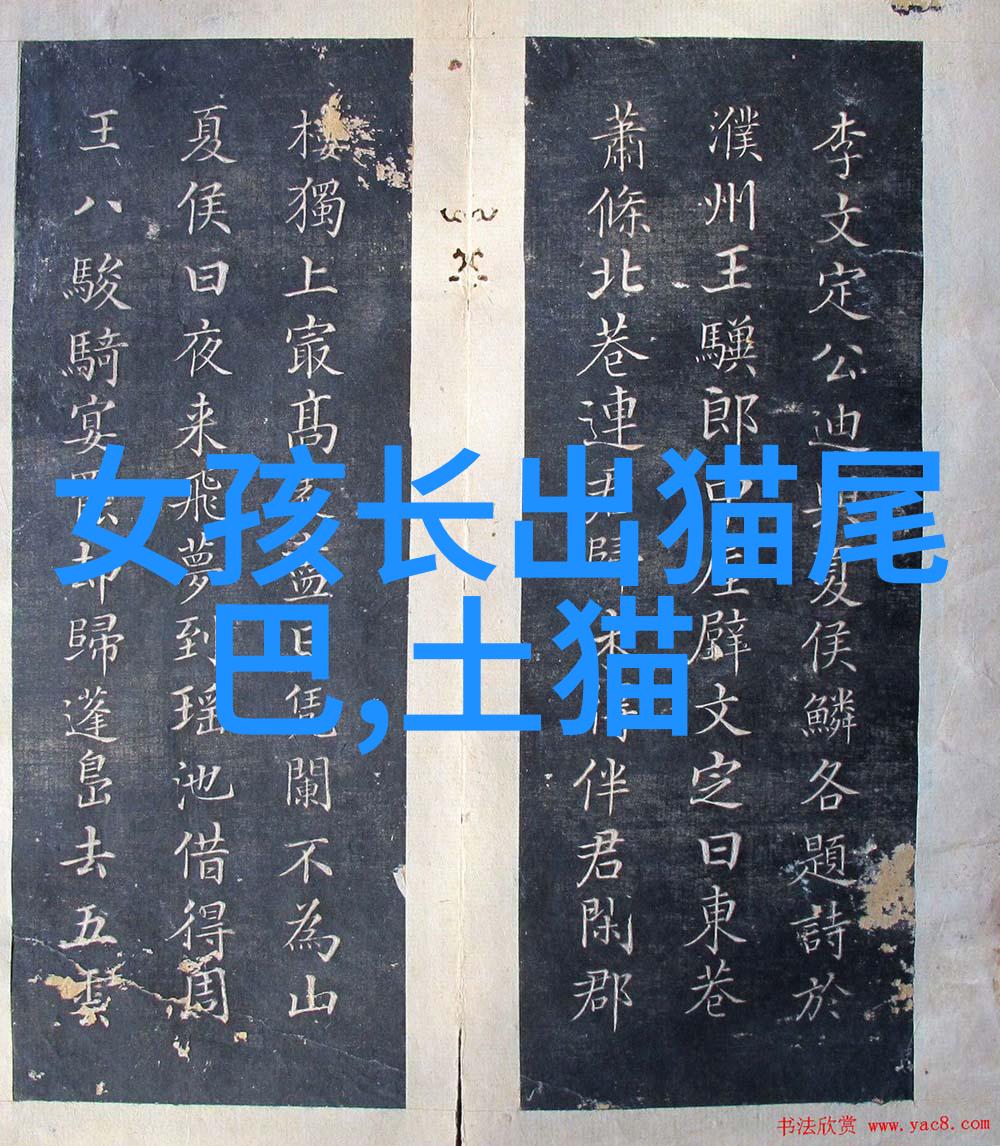 李文定公迪與夏侯鱗各題詩於
濮州王郎中屋壁文定曰東巷
蕭條北巷連歸未得伴君閑郡
樓獨上冣高處盡日凭闌不為山
夏侯曰夜来飛夢到瑶池借得周
王八駿騎宴罷却歸蓬島去五雲
女孩长出猫尾
巴,土猫
书法欣赏 www.yac8.com